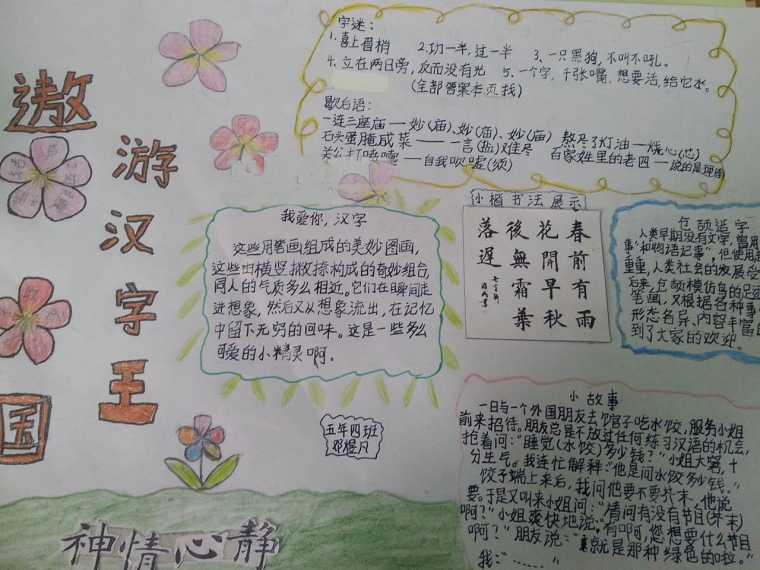 遨
游
汉
字
王
国
字迷:
1.喜上眉梢 2.功一半,过一半 3、一只黑狗,不叫不吼。
4.立在两日旁,反而没有光 5、一个字,千张嘴,想要活,给它水。
(全部答案本页找)
歇后语:
一连三座庙——妙(庙)、妙(庙)、妙(庙) 熬尽了灯油—烧心(芯)
石头蛋腌成菜——一言(盐)难尽 百家姓里的老四—说的是理
关公打喷嚏——自我吹嘘(须)
我爱你,汉字
这些用笔画组成的美妙图画,
这些由横竖撇捺构成的奇妙组合,
同人的气质多么相近。它们在瞬间走
进想象,然后又从想象流出,在记忆
中留下无穷的回味。这是一些多么
可爱的小精灵啊.
小楷书法展示
春前有雨
花開早秋
後無霜葉
落遲
仓颉造字
人类早期没有文字,曾用
事"和物语记事",但使用起
重重,人类社会的发展
仓颉模仿鸟的足迹
笔画,又根据各种事
形态各异、内容丰富
到了大家的欢迎.
五年四班
小故事
一日与一个外国朋友去饭官子吃水饺,服务小姐
前来招待。朋友总是不放过任何练习汉语的机会,
抢着问:"睡觉(水饺)多少钱?"小姐大窘,十
分生气。我连忙解释:"他是问水饺多少钱。"
饺子端上来后,我问他要不要芥末,他说
要。于是又叫来小姐问:"请问有没有节目(芥末)
啊?"小姐爽快地说:"有啊,您想要什么节目
啊?"朋友说:"就是那种绿色的啦。"
我:"……"
神情心静